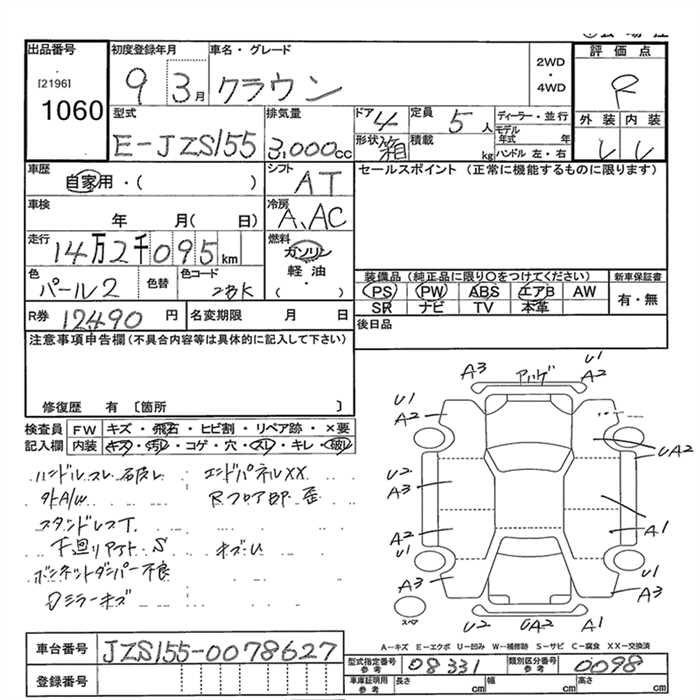 出品番号
[2196]
1060
初度登録年月
9 3月
車名・グレード
クラウン
2WD
・
4WD
評価点
R
外装 内装
型式
E-JZS155
排気量
3,000cc
ドア 4
形状 箱
定員 5人
積載 kg
ディーラー・並行
モデル年式 年
ハンドル 左・右
車歴
自家用・( )
シフト
AT
セールスポイント (正常に機能するものに限ります)
車検
年 月( 日)
冷房
A、AC
走行
14万2千095km
燃料
ガソリン
軽油・
( )
色
パール2
色替
色コード
2BK
装備品 (純正品に限り○をつけてください)
PS PW ABS エアB AW
SR ナビ TV 本革
新車保証書
有・無
R券 12490 円
名変期限 月 日
後日品
注意事項申告欄(不具合内容等は具体的に記入して下さい)
修復歴 有 〔箇所 〕
検査員記入欄
FW キズ・飛石・ヒビ割・リペア跡・×要
内装 キズ・汚レ・コゲ・穴・スレ・キレ・破レ
ハンドルスレ
エンドパネルXX
外A/W
Rフロア部 歪
スタンドレスT.
下廻り S
キズU
ボンネットダンパー不良
ミラーキズ
A3
U1
A2
U1
A2
UA2
U2
A3
A1
A2
U1
U1
A3
A3
U2 UA2 U1
スペア
A-キズ E-エクボ U-凹み W-補修跡 S-サビ C-腐食 XX-交換済
車台番号 JZS155-0078627
登録番号
型式指定番号 参考 08331
類別区分番号 参考 0098
車庫証明用 参考 長さ cm 幅 cm 高さ cm